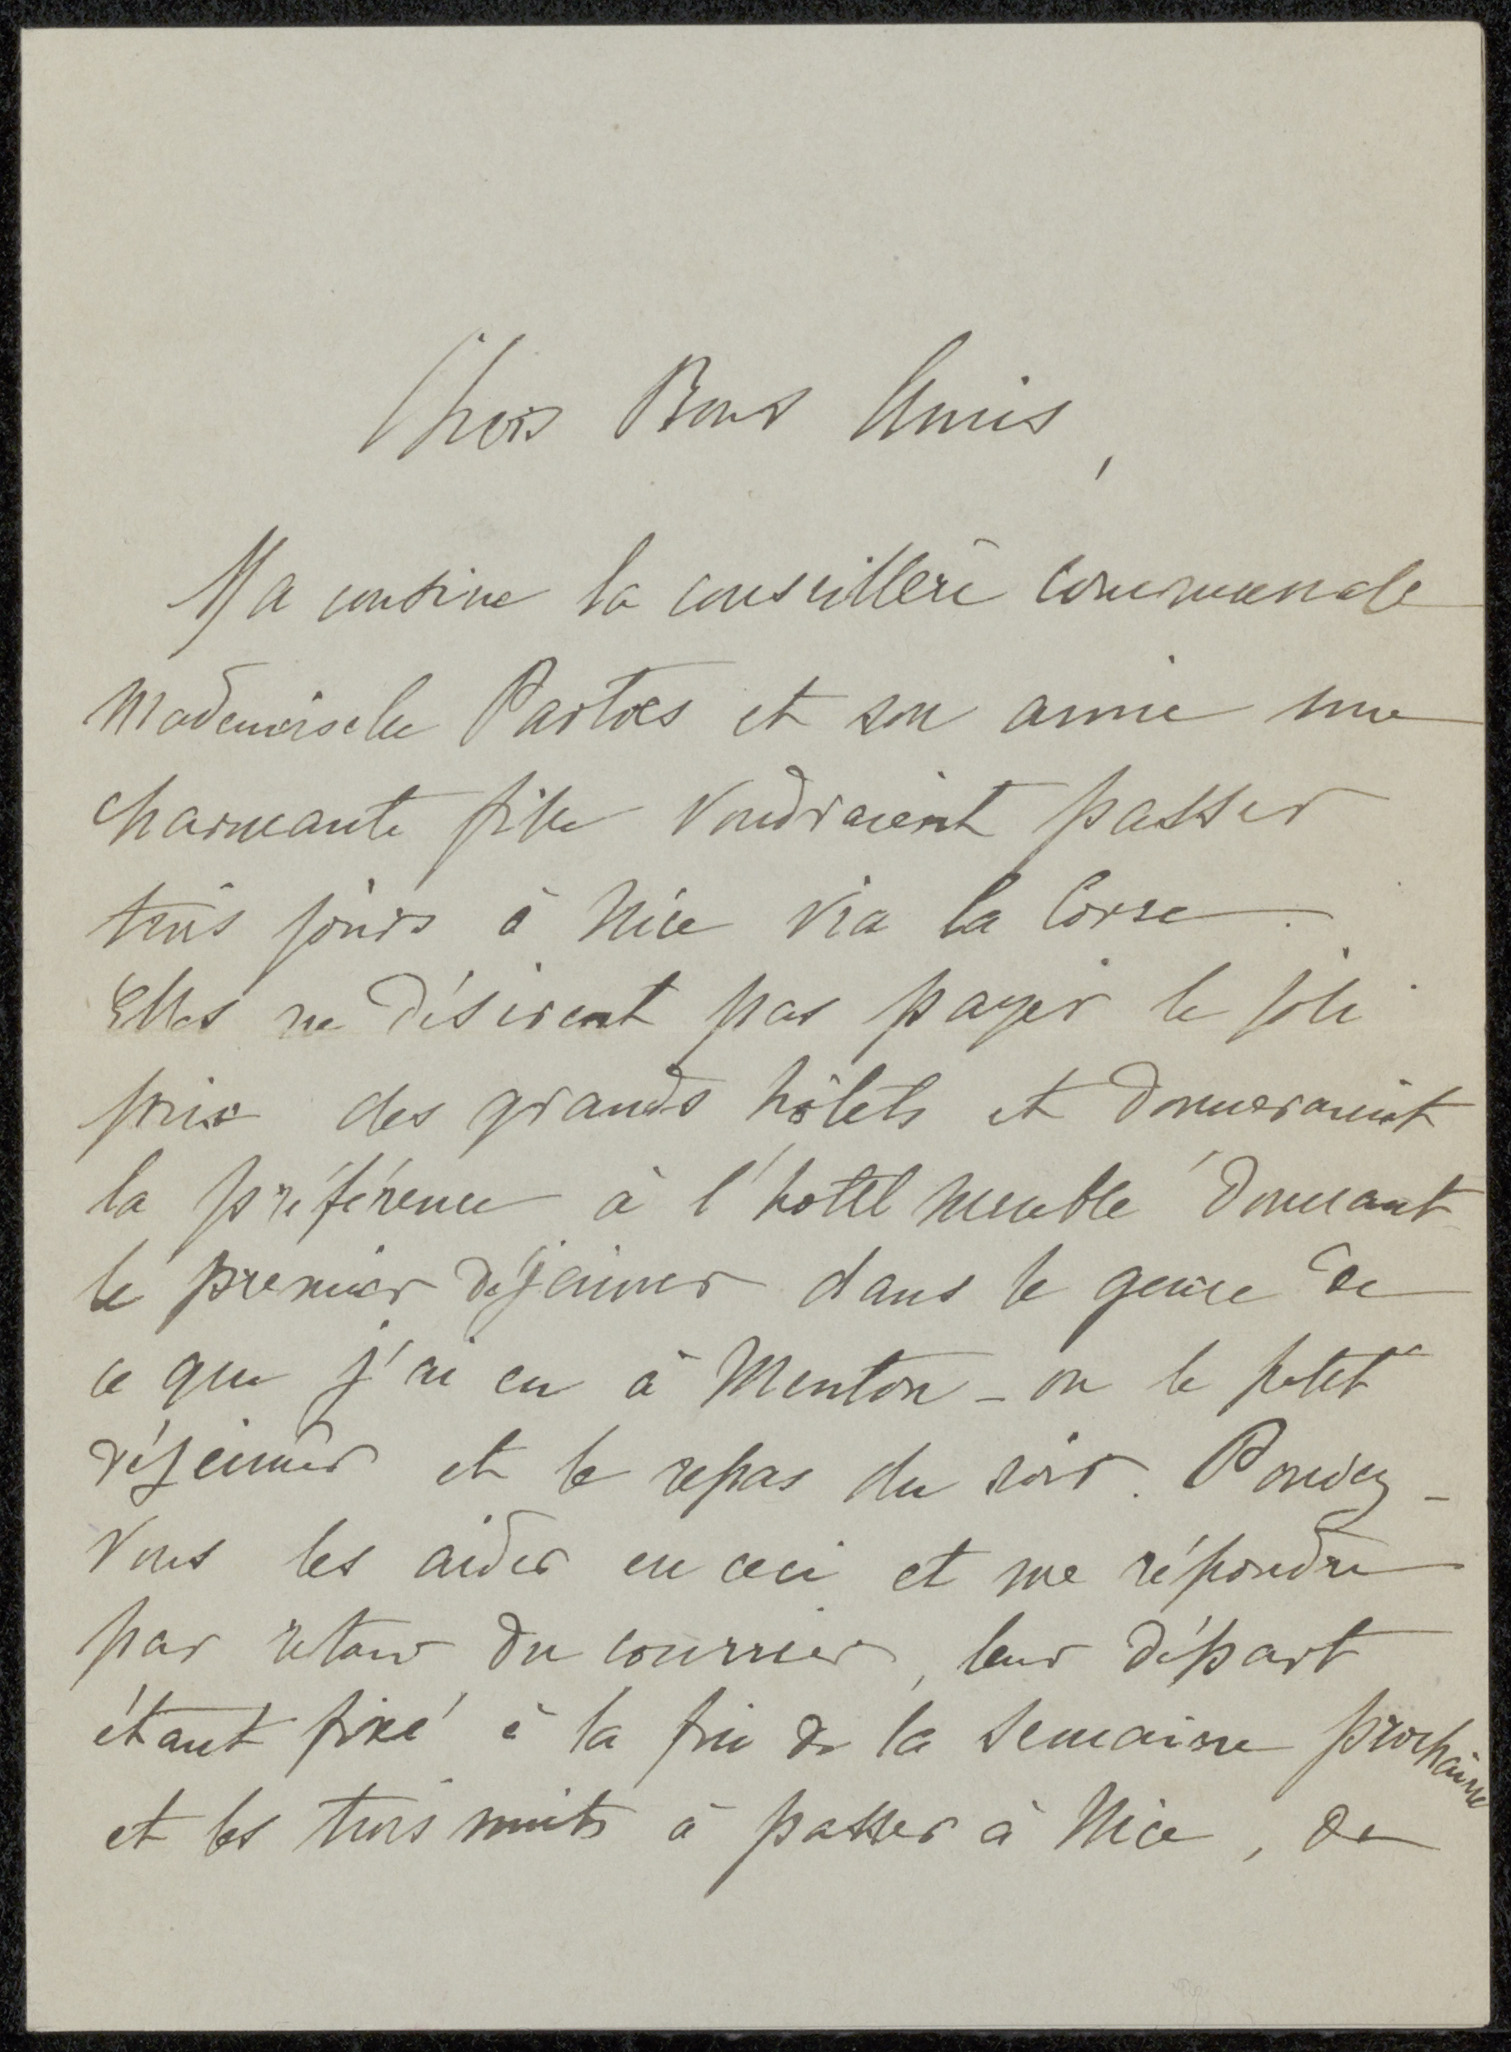 Chers Bons Amis,
Ma cousine la conseillère communale
Mademoiselle Partoes et son amie une
charmante fille voudraient passer
trois jours à Nice via la Corse.
Elles ne désirent pas payer le joli
prix des grands hôtels et donneraient
la préférence à l'hotel meublé donnant
le premier déjeuner dans le genre de
ce que j'ai eu à Menton - ou le petit
déjeuner et le repas du soir. Pouvez-
vous les aider en ceci et me répondre
par retour du courrier, leur départ
étant fixé à la fin de la semaine prochaine
et les trois nuits à passer à Nice, de